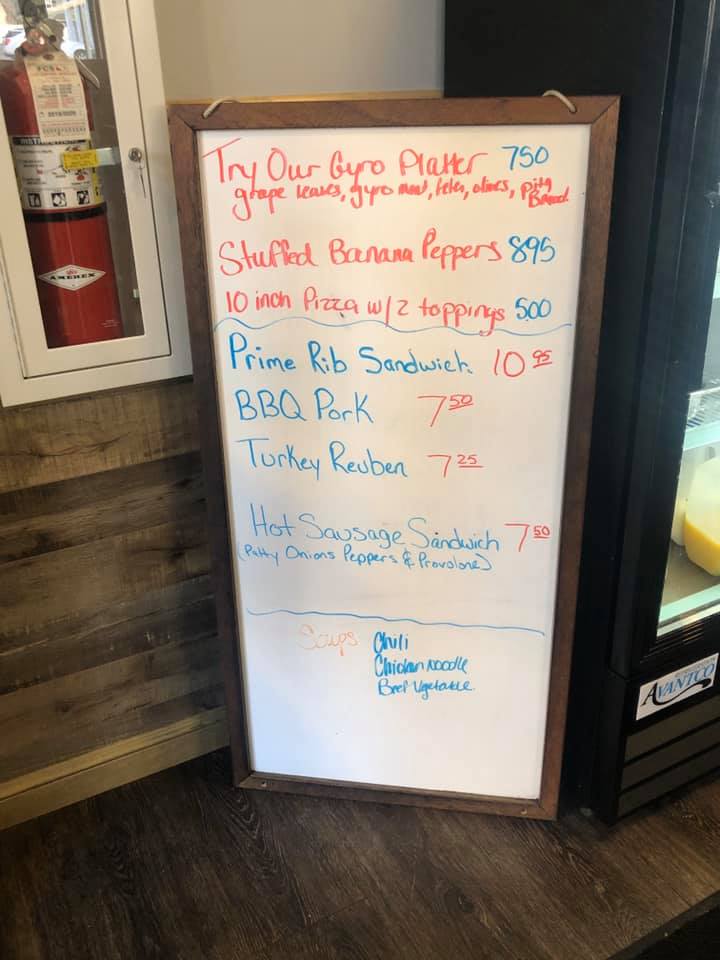 Try Our Gyro Platter 750
grape leaves, gyro meat, feta, olives, pita
Bread
Stuffed Banana Peppers 895
10 inch Pizza w/2 toppings 500
Prime Rib Sandwich 10 95
BBQ Pork 7 50
Turkey Reuben 7 25
Hot Sausage Sandwich 7 50
(Patty Onions Peppers & Provolone)
Soups Chili
Chicken Noodle
Beef Vgetable
AMEREX
AVANTCO